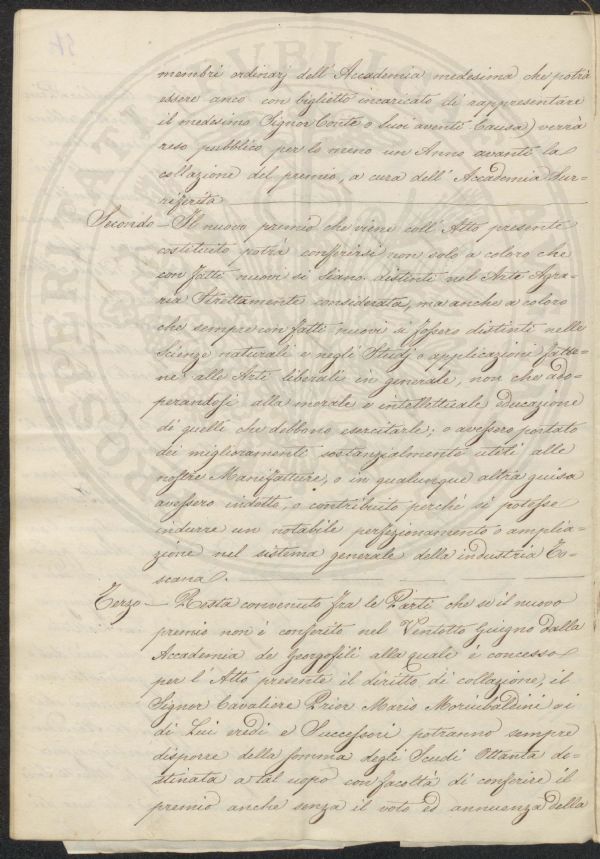 54
membri ordinarj dell' Accademia medesima che potrà
essere anco con biglietto incaricato di rappresentare
il medesimo Signor Conte o Suoi aventi Causa) verrà
reso pubblico per lo meno un Anno avanti la
collazione del premio, a cura dell' Accademia Sur-
riferita.
Secondo — Il nuovo premio che viene coll' Atto presente
costituito potrà conferirsi non solo a coloro che
con fatti nuovi si siano distinti nell' Arte Agra-
ria Strettamente considerata, ma anche a coloro
che sempre con fatti nuovi si fossero distinti nelle
Scienze naturali e negli Studj o applicazioni fatte-
ne alle Arti liberali in generale, non che ado-
perandosi alla morale e intellettuale educazione
di quelli che debbono esercitarle; o avessero portato
dei miglioramenti sostanzialmente utili alle
nostre Manifatture, o in qualunque altra guisa
avessero indotto, o contribuito perchè si potesse
indurre un notabile perfezionamento o amplia-
zione nel sistema generale della industria To-
scana.
Terzo — Resta convenuto fra le Parti che se il nuovo
premio non è conferito nel Ventotto Giugno dalla
Accademia de Georgofili alla quale è concesso
per l' Atto presente il diritto di collazione, il
Signor Cavaliere Prior Mario Morubaldini o i
di Lui eredi e Successori potranno sempre
disporre della somma degli Scudi Ottanta de-
stinata a tal uopo con facoltà di conferire il
premio anche senza il voto ed annuenza della
PROSPERITATI PUBLICAE